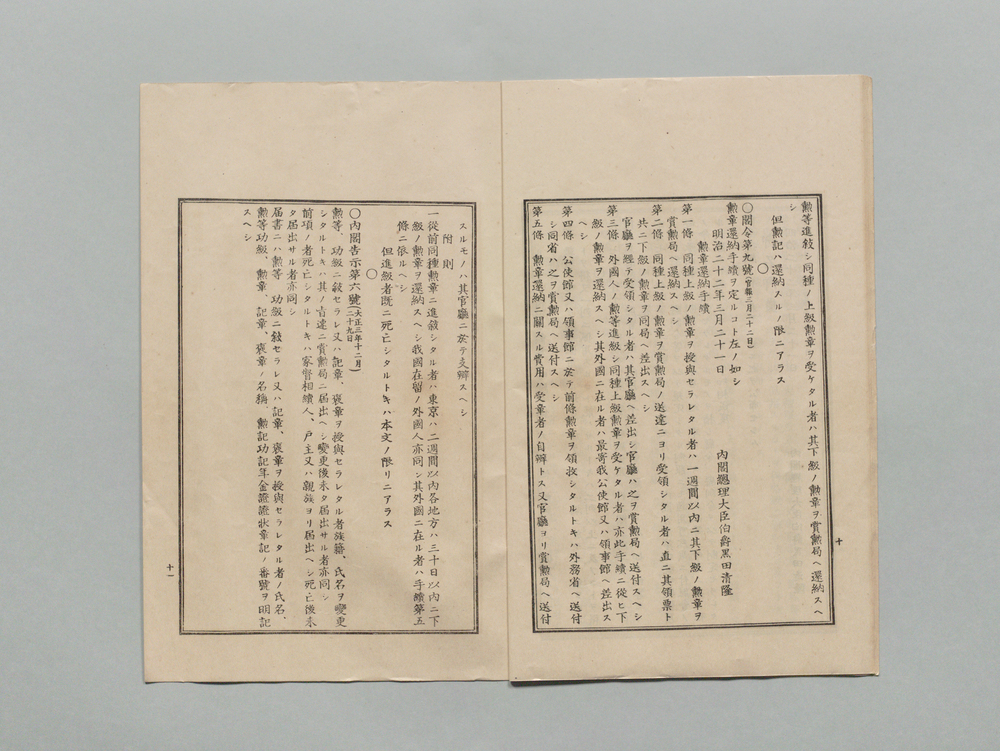 勲等進敍シ同種ノ上級勲章ヲ受ケタル者ハ其下級ノ勲章ヲ賞勲局ヘ還納スヘ
シ
但勲記ハ還納スルノ限ニアラス
〇
〇閣令第九號(官報三月二十二日)
勲章還納手續ヲ定ルコト左ノ如シ
明治二十二年三月二十一日
内閣總理大臣伯爵黒田清隆
勲章還納手續
第一條 同種上級ノ勲章ヲ授與セラレタル者ハ一週間以内ニ其下級ノ勲章ヲ
賞勲局ヘ還納スヘシ
第二條 同種上級ノ勲章ヲ賞勲局ノ送達ニヨリ受領シタル者ハ直ニ其領票ト
共ニ下級ノ勲章ヲ同局ヘ差出スヘシ
官廳ヲ經テ受領シタル者ハ其官廳ヘ差出シ官廳ハ之ヲ賞勲局ヘ送付スヘシ
第三條 外國人ノ勲等進級シ同種上級勲章ヲ受ケタル者ハ亦此手續ニ從ヒ下
級ノ勲章ヲ還納スヘシ其外國ニ在ル者ハ最寄我公使館又ハ領事館ヘ差出ス
ヘシ
第四條 公使館又ハ領事館ニ於テ前條勲章ヲ領收シタルトキハ外務省ヘ送付
シ同省ハ之ヲ賞勲局ヘ送付スヘシ
第五條 勲章還納ニ關スル費用ハ受章者ノ自辨トス又官廳ヨリ賞勲局ヘ送付
十
スルモノハ其官廳ニ於テ支辨スヘシ
附則
一從前同種勲章ニ進敍シタル者ハ東京ハ二週間以内各地方ハ三十日以内ニ下
級ノ勲章ヲ還納スヘシ我國在留ノ外國人亦同シ其外國ニ在ル者ハ手續第五
條ニ依ルヘシ
但進級者既ニ死亡シタルトキハ本文ノ限リニアラス
〇
〇内閣告示第六號(大正三年十二月二十九日)
勲等、功級ニ敍セラレ又ハ記章、褒章ヲ授與セラレタル者族籍、氏名ヲ變更
シタルトキハ其ノ旨速ニ賞勲局ニ届出ヘシ變更後未タ届出サル者亦同シ
前項ノ者死亡シタルトキハ家督相續人、戸主又ハ親族ヨリ届出ヘシ死亡後未
タ届出サル者亦同シ
届書ニハ勲等、功級ニ敍セラレ又ハ記章、褒章ヲ授與セラレタル者ノ氏名、
勲等功級、勲章、記章、褒章ノ名稱、勲記功記年金證證状章記ノ番號ヲ明記
スヘシ
十一